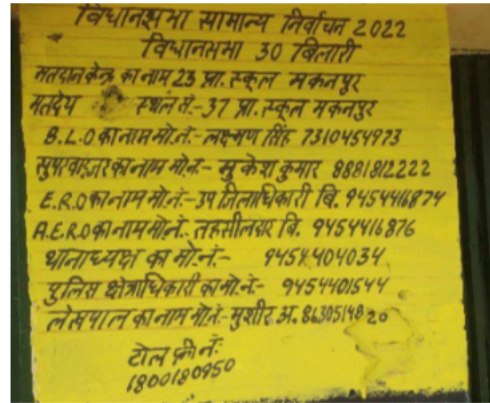 विधानसभा सामान्य निर्वाचन 2022
विधानसभा 30 बिलारी
मतदान केन्द्र का नाम 23 प्रा. स्कूल मकनपुर
मतदेय स्थल सं.- 37 प्रा. स्कूल मकनपुर
B.L.O का नाम मो.नं.- लक्ष्मण सिंह 7310454973
सुपरवाइजर का नाम मो.नं.- मुकेश कुमार 8881812222
E.R.O का नाम मो.नं.- उप जिलाधिकारी बि. 9454416874
A.E.R.O का नाम मो.नं.- तहसीलदार बि. 9454416876
थानाध्यक्ष का मो.नं.- 9454404034
पुलिस क्षेत्राधिकारी का मो.नं.- 9454401544
लेखपाल का नाम मो.नं.- मुशीर अ. 8630514820
टोल फ्री नं.
1800180950